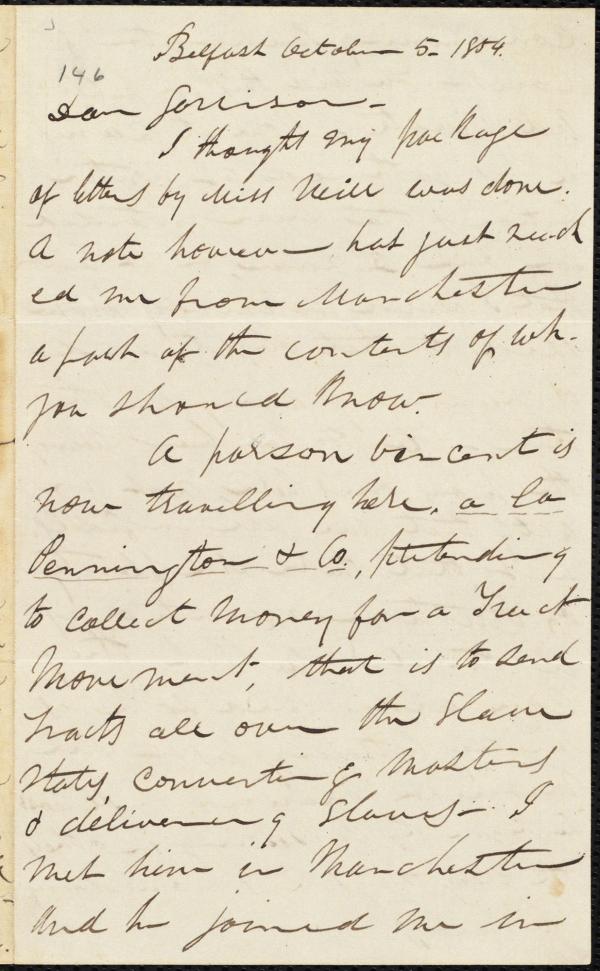 Belfast October 5- 1854.
146
Dear Garrison-
I thought my package
of letters by Miss Neill was done.
A note however has just reach
ed me from Manchester
a part of the contents of wh.
you should know.
A parson Vincent is
now travelling here, a la
Pennington & Co., pretending
to collect money for a Tract
Movement, that is to send
tracts all over the Slave
States, converting Masters
& delivering Slaves- I
met him in Manchester
and he joined me in